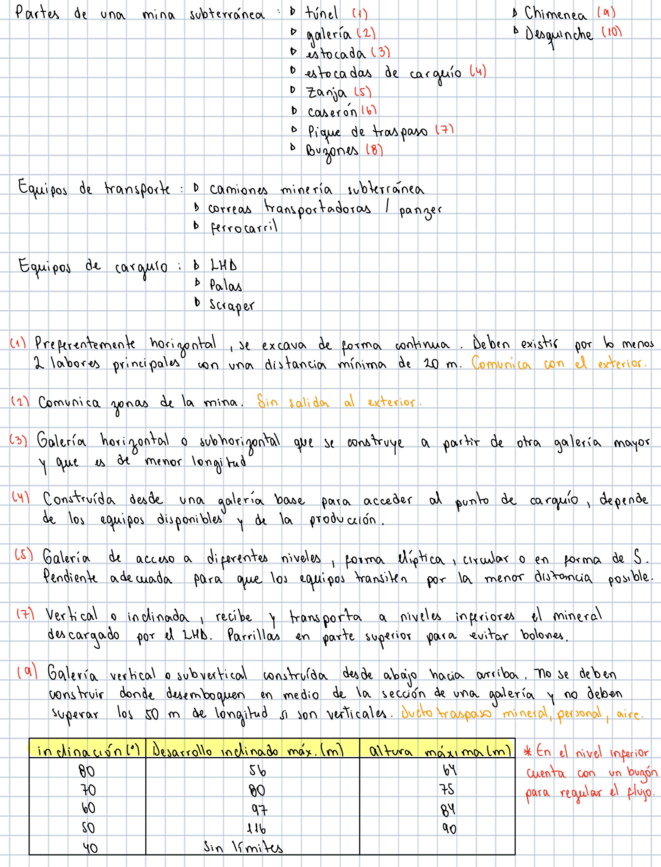 Partes de una mina subterránea : ▷ túnel (1)
▷ galería (2)
▷ estocada (3)
▷ estocadas de carguío (4)
▷ zanja (5)
▷ caserón (6)
▷ Pique de traspaso (7)
▷ Buzones (8)
▷ Chimenea (9)
▷ Desquinche (10)
Equipos de transporte : ▷ camiones minería subterránea
▷ correas transportadoras / panzer
▷ ferrocarril
Equipos de carguío : ▷ LHD
▷ Palas
▷ Scraper
(1) Preferentemente horizontal, se excava de forma continua. Deben existir por lo menos
2 labores principales con una distancia mínima de 20 m. Comunica con el exterior.
(2) Comunica zonas de la mina. Sin salida al exterior.
(3) Galería horizontal o subhorizontal que se construye a partir de otra galería mayor
y que es de menor longitud
(4) Construída desde una galería base para acceder al punto de carguío, depende
de los equipos disponibles y de la producción.
(5) Galería de acceso a diferentes niveles, forma elíptica, circular o en forma de S.
Pendiente adecuada para que los equipos transiten por la menor distancia posible.
(7) Vertical o inclinada, recibe y transporta a niveles inferiores el mineral
descargado por el LHD. Parrillas en parte superior para evitar bolones.
(9) Galería vertical o subvertical construída desde abajo hacia arriba. No se deben
construir donde desemboquen en medio de la sección de una galería y no deben
superar los 50 m de longitud si son verticales. Ducto traspaso mineral, personal, aire.
inclinación (°) Desarrollo inclinado máx. (m) altura máxima (m)
80 56 64
70 80 75
60 97 84
50 116 90
40 Sin límites
* En el nivel inferior
cuenta con un buzón
para regular el flujo.